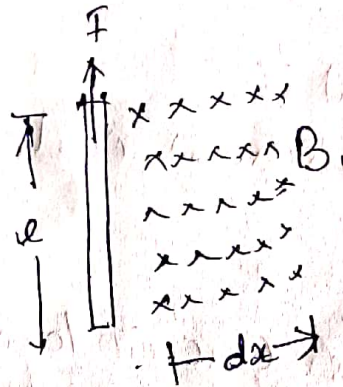 I
x x x x x
x x x x x B
x x x x x
l
x x x x x
x x x x x
dx